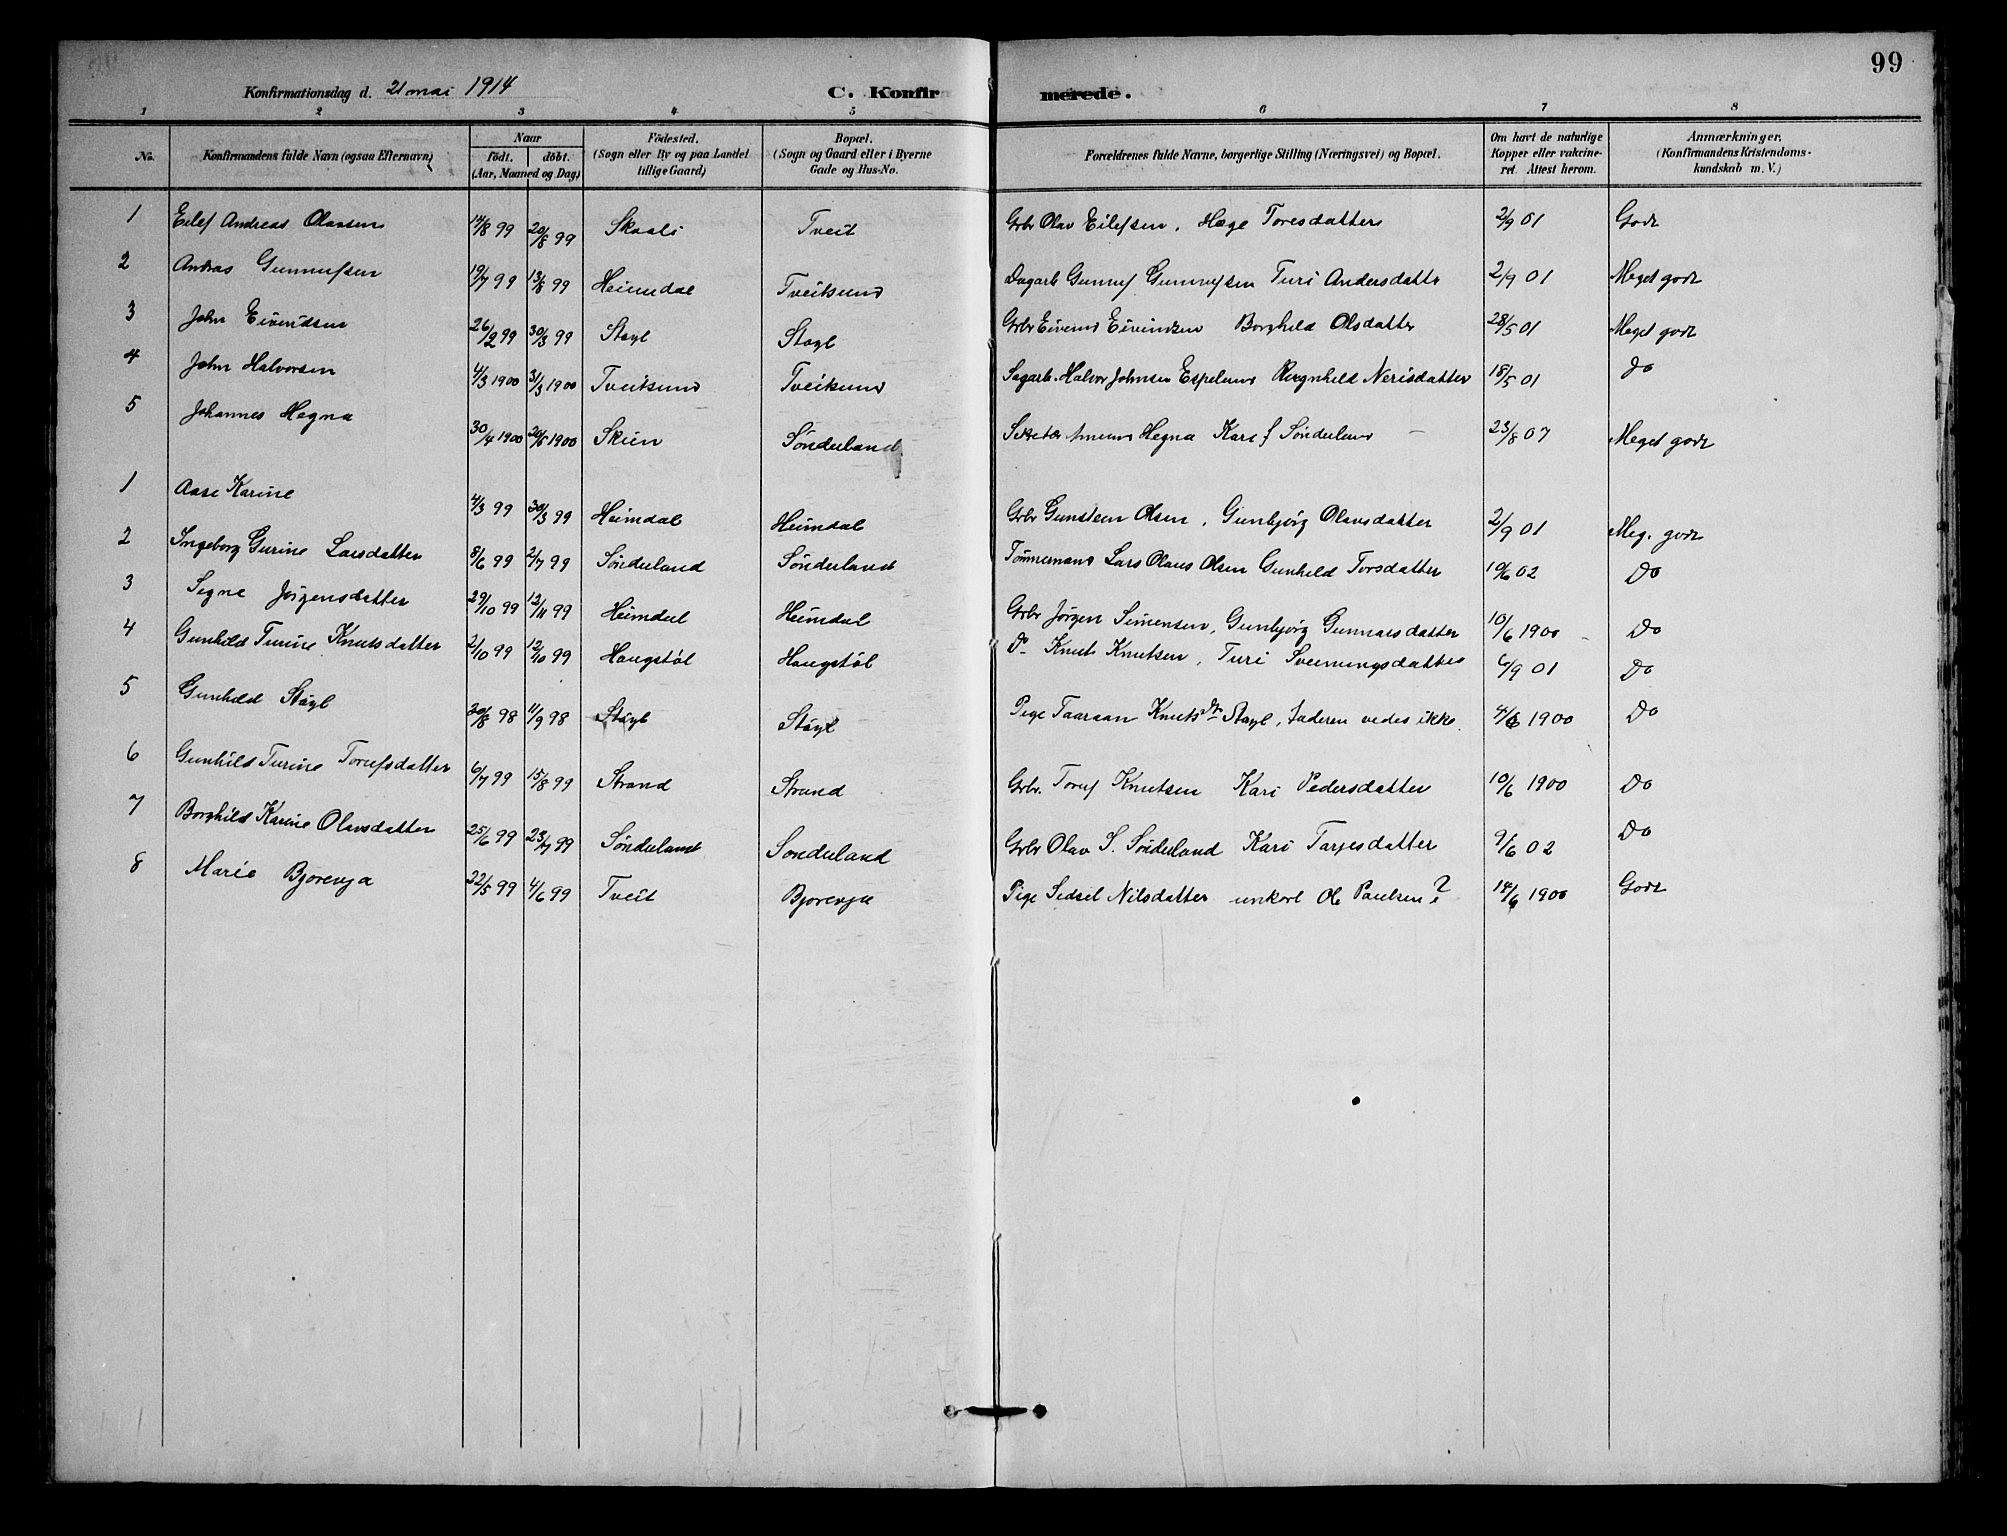 99
Konfirmationsdag d. 21 mai 1914 C. Konfirmerede.
1 2 3 4 5 6 7 8
No. Konfirmandens fulde Navn (ogsaa Efternavn) Naar født. døbt. (Aar, Maaned og Dag) Födested. (Sogn eller By og paa Landet tillige Gaard) Bopæl. (Sogn og Gaard eller i Byerne Gade og Hus-No. Forældrenes fulde Navne, borgerlige Stilling (Næringsvei) og Bopæl. Om havt de naturlige Kopper eller vakcineret. Attest herom. Anmærkninger. (Konfirmandens Kristendomskundskab m. V.)
1 Eilef Andreas Olavsen 14/8 99 20/8 99 Skaali Tveit Grbr Olav Eilefsen, Hæge Toresdatter 2/9 01 Godt
2 Andras Gunnufsen 19/7 99 13/8 99 Heimdal Tveitsund Dagarb Gunnuf Gunnufsen Turi Andersdatte 2/9 01 Meget godt
3 John Eivendsen 26/2 99 30/3 99 Støyl Støyl Grbr Eivend Eivindsen Borghild Olsdatter 28/5 01 Meget godt
4 John Halvorsen 4/3 1900 31/3 1900 Tveitsund Tveitsund Sagarb. Halvor Johnsen Espelund Ragnhild Nerisdatter 18/5 01 do
5 Johannes Hegna 30/4 1900 20/5 1900 Skien Sönderland Hegna Kari f Sønderland 23/8 07 Meget godt
1 Aase Karine 4/3 99 30/3 99 Heimdal Heimdal Grbr Gunsteen Olsen, Gunbjørg Olavsdatter 2/9 01 Meg. godt
2 Ingeborg Gurine Larsdatter 8/6 99 2/7 99 Sønderland Sønderland Tømmermand Lars Olaus Olsen Gunhild Torsdatter 10/6 02 Do
3 Signe Jørgensdatter 29/10 99 12/11 99 Heimdal Heimdal Grbr Jørgen Simensen, Gunbjørg Gunnarsdatter 10/6 1900 Do
4 Gunhild Turine Knutsdatter 2/10 99 12/10 99 Haugstøl Haugstøl Do Knut Knutsen, Turi Sveinungsdatter 6/9 01 Do
5 Gunhild Støyl 20/8 98 11/9 98 Støyl Støyl Pige Taaraan Knutsdtr Støyl, Faderen vedes ikke 4/6 1900 Do
6 Gunhild Turine Torufsdatter 6/7 99 15/8 99 Strand Strand Grbr. Toruf Knutsen Kari Pedersdatter 10/6 1900 Do
7 Borghild Karine Olavsdatter 25/6 99 23/7 99 Sønderland Sønderland Grbr Olav S. Sønderland Kari Tarjesdatter 9/6 02 Do
8 Marie Bjorevja 22/5 99 4/6 99 Tveit Bjorevja Pige Sidsel Nilsdatter unkarl Ole Paulsen? 14/6 1900 Godt